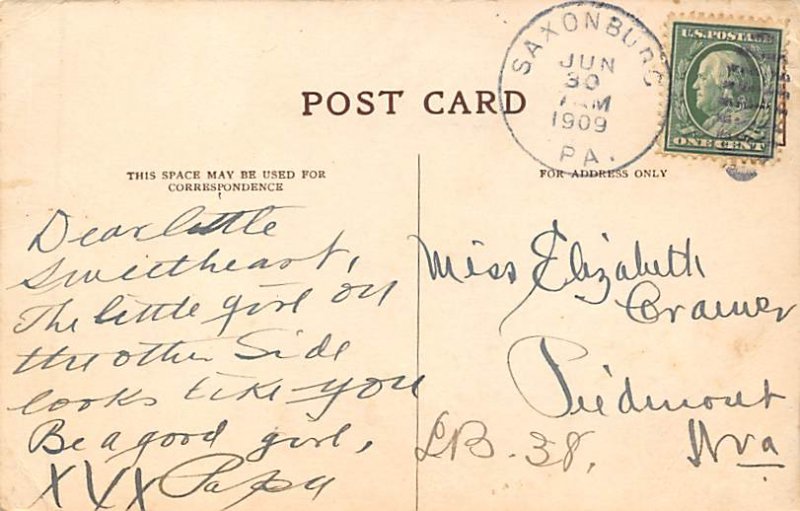 POST CARD
SAXONBURG
JUN
30
7 AM
1909
PA.
U.S. POSTAGE
ONE CENT
THIS SPACE MAY BE USED FOR
CORRESPONDENCE
FOR ADDRESS ONLY
Dear little
Sweetheart,
The little girl on
the other Side
looks like you
Be a good girl,
XXX Papa
Miss Elizabeth
Cramer
Piedmont
Wva
LB-38.